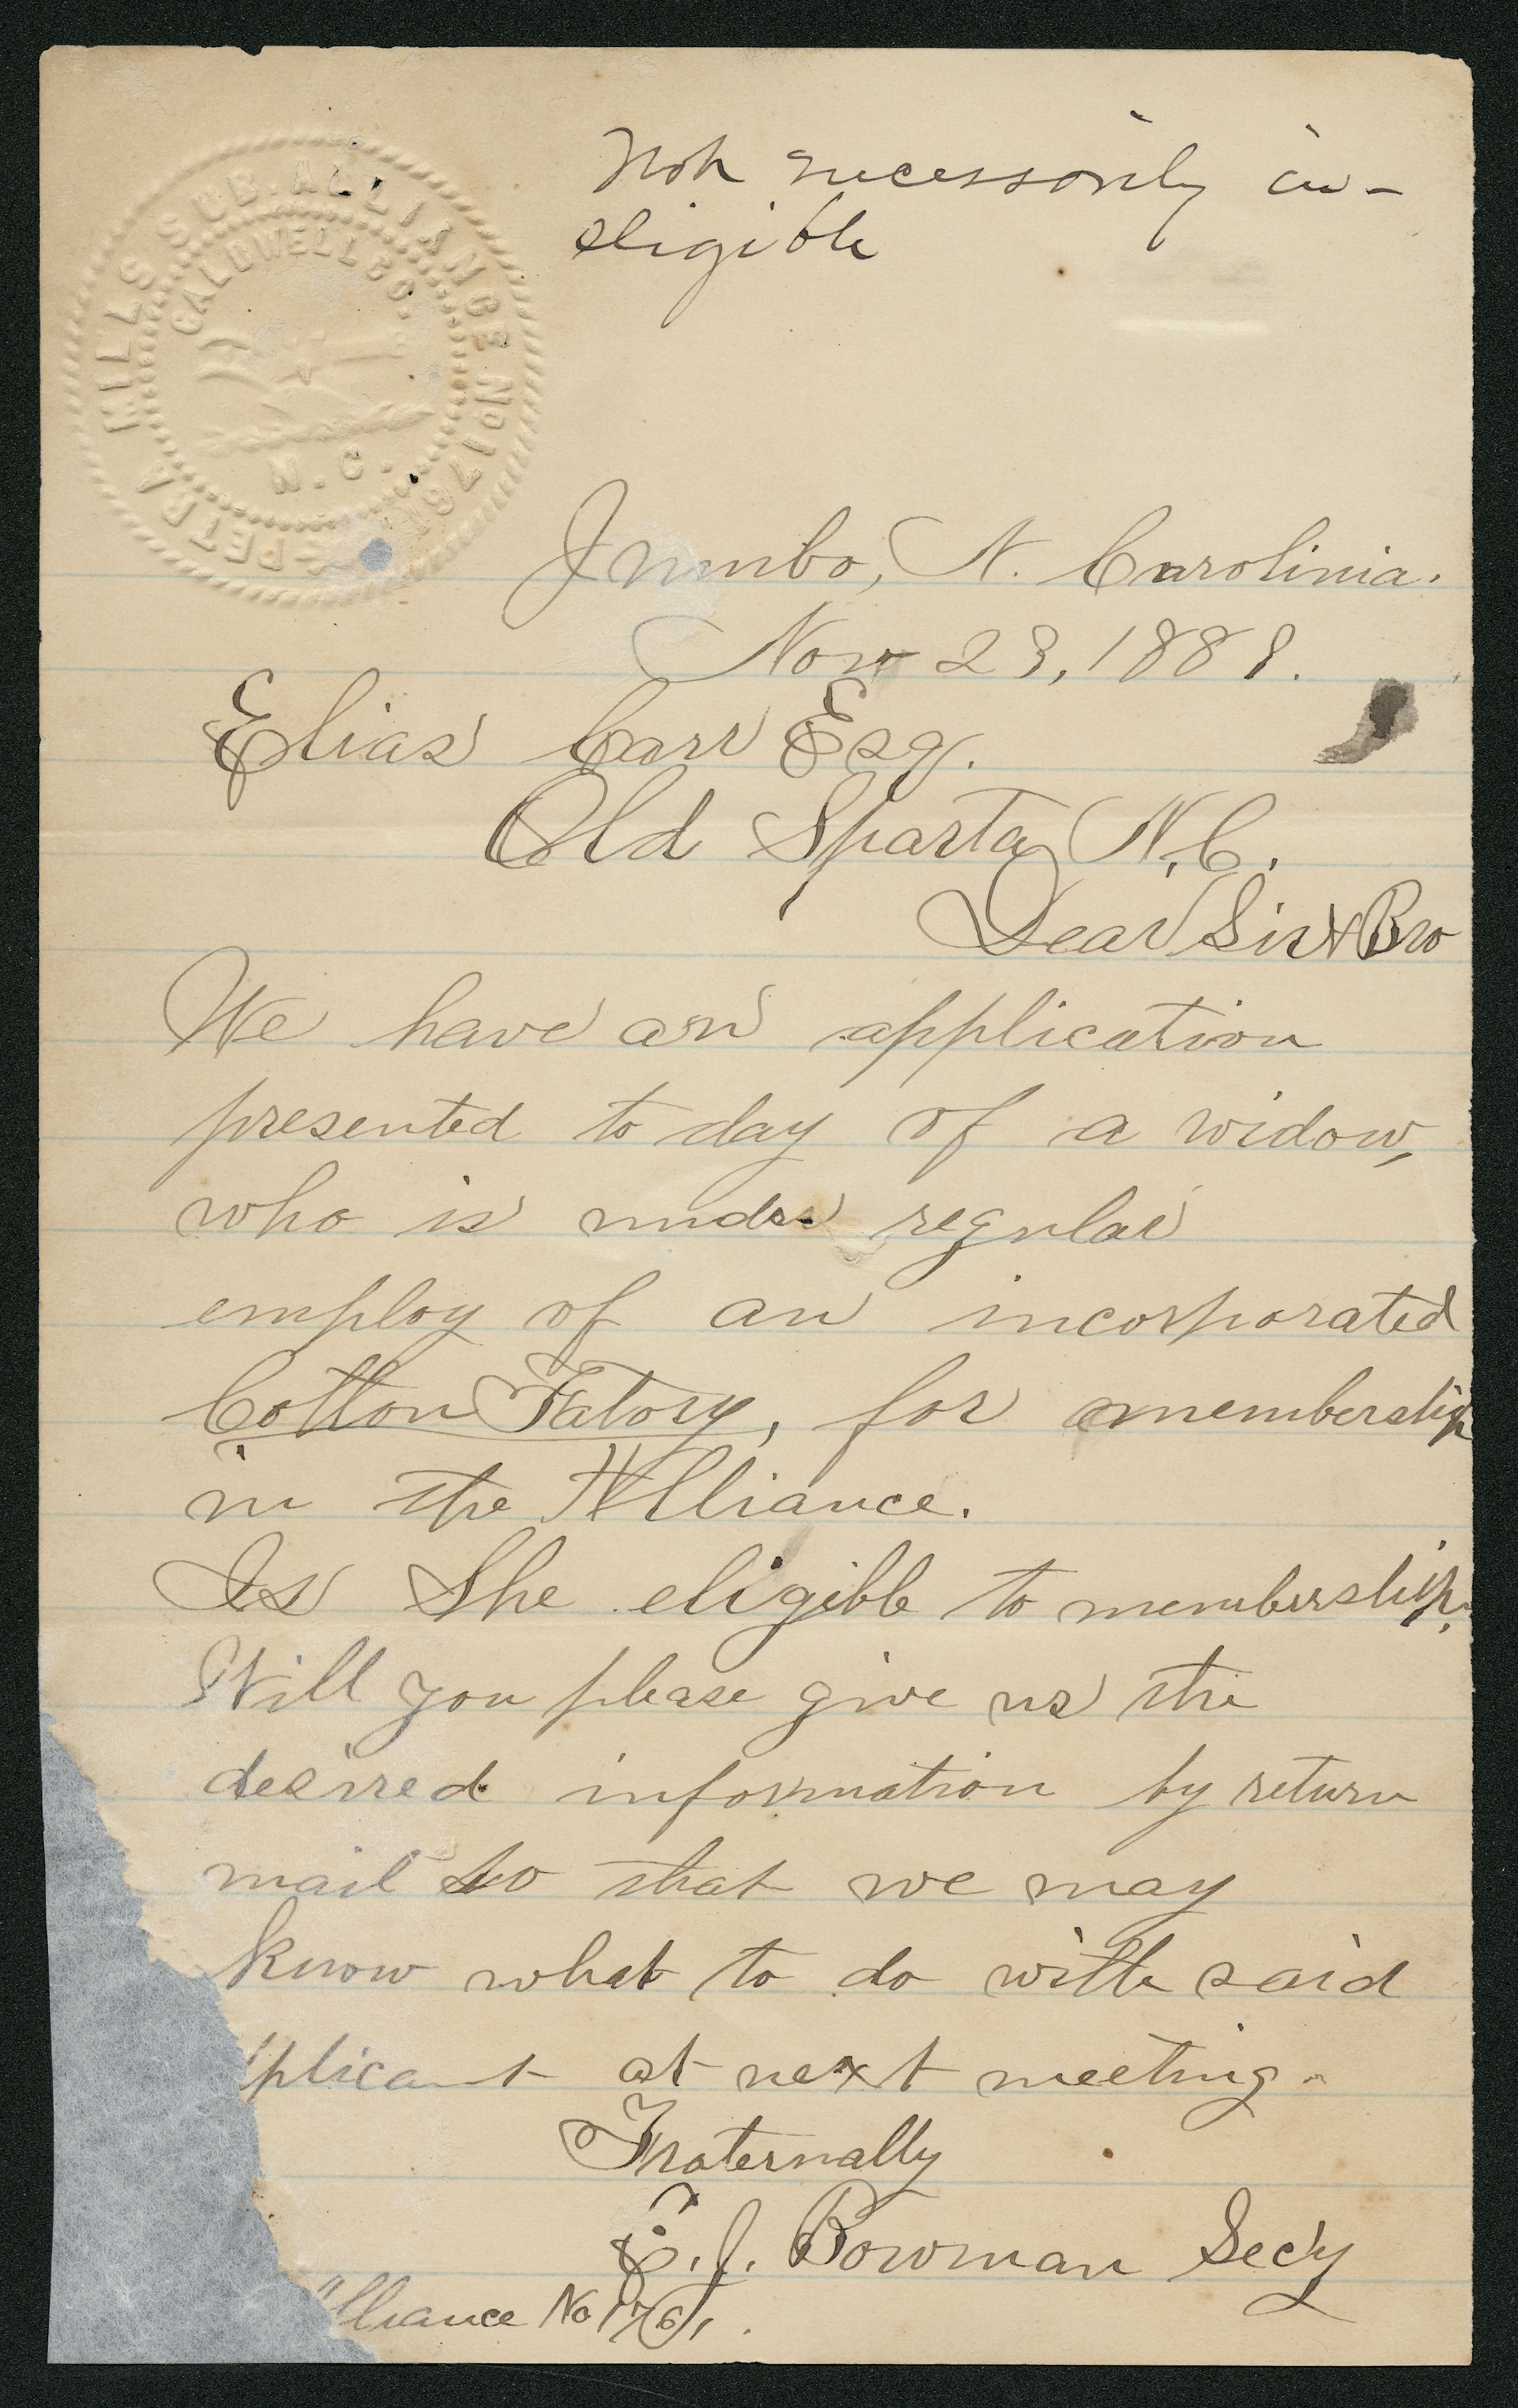 Not necessarily in-
eligible
PETRA MILLS SUB. ALLIANCE No 1761
CALDWELL CO.
N.C.
Jumbo, N. Carolinia.
Nov 23, 1888.
Elias Carr Esq.
Old Sparta, N.C.
Dear Sir & Bro
We have an application
presented to day of a widow,
who is under regular
employ of an incorporated
Cotton Fatory, for membership
in the Alliance.
Is She eligible to membership.
Will you please give us the
desired information by return
mail so that we may
know what to do with said
plicant at next meeting.
Fraternally
E. J. Bowman Secy
Alliance No 1761.